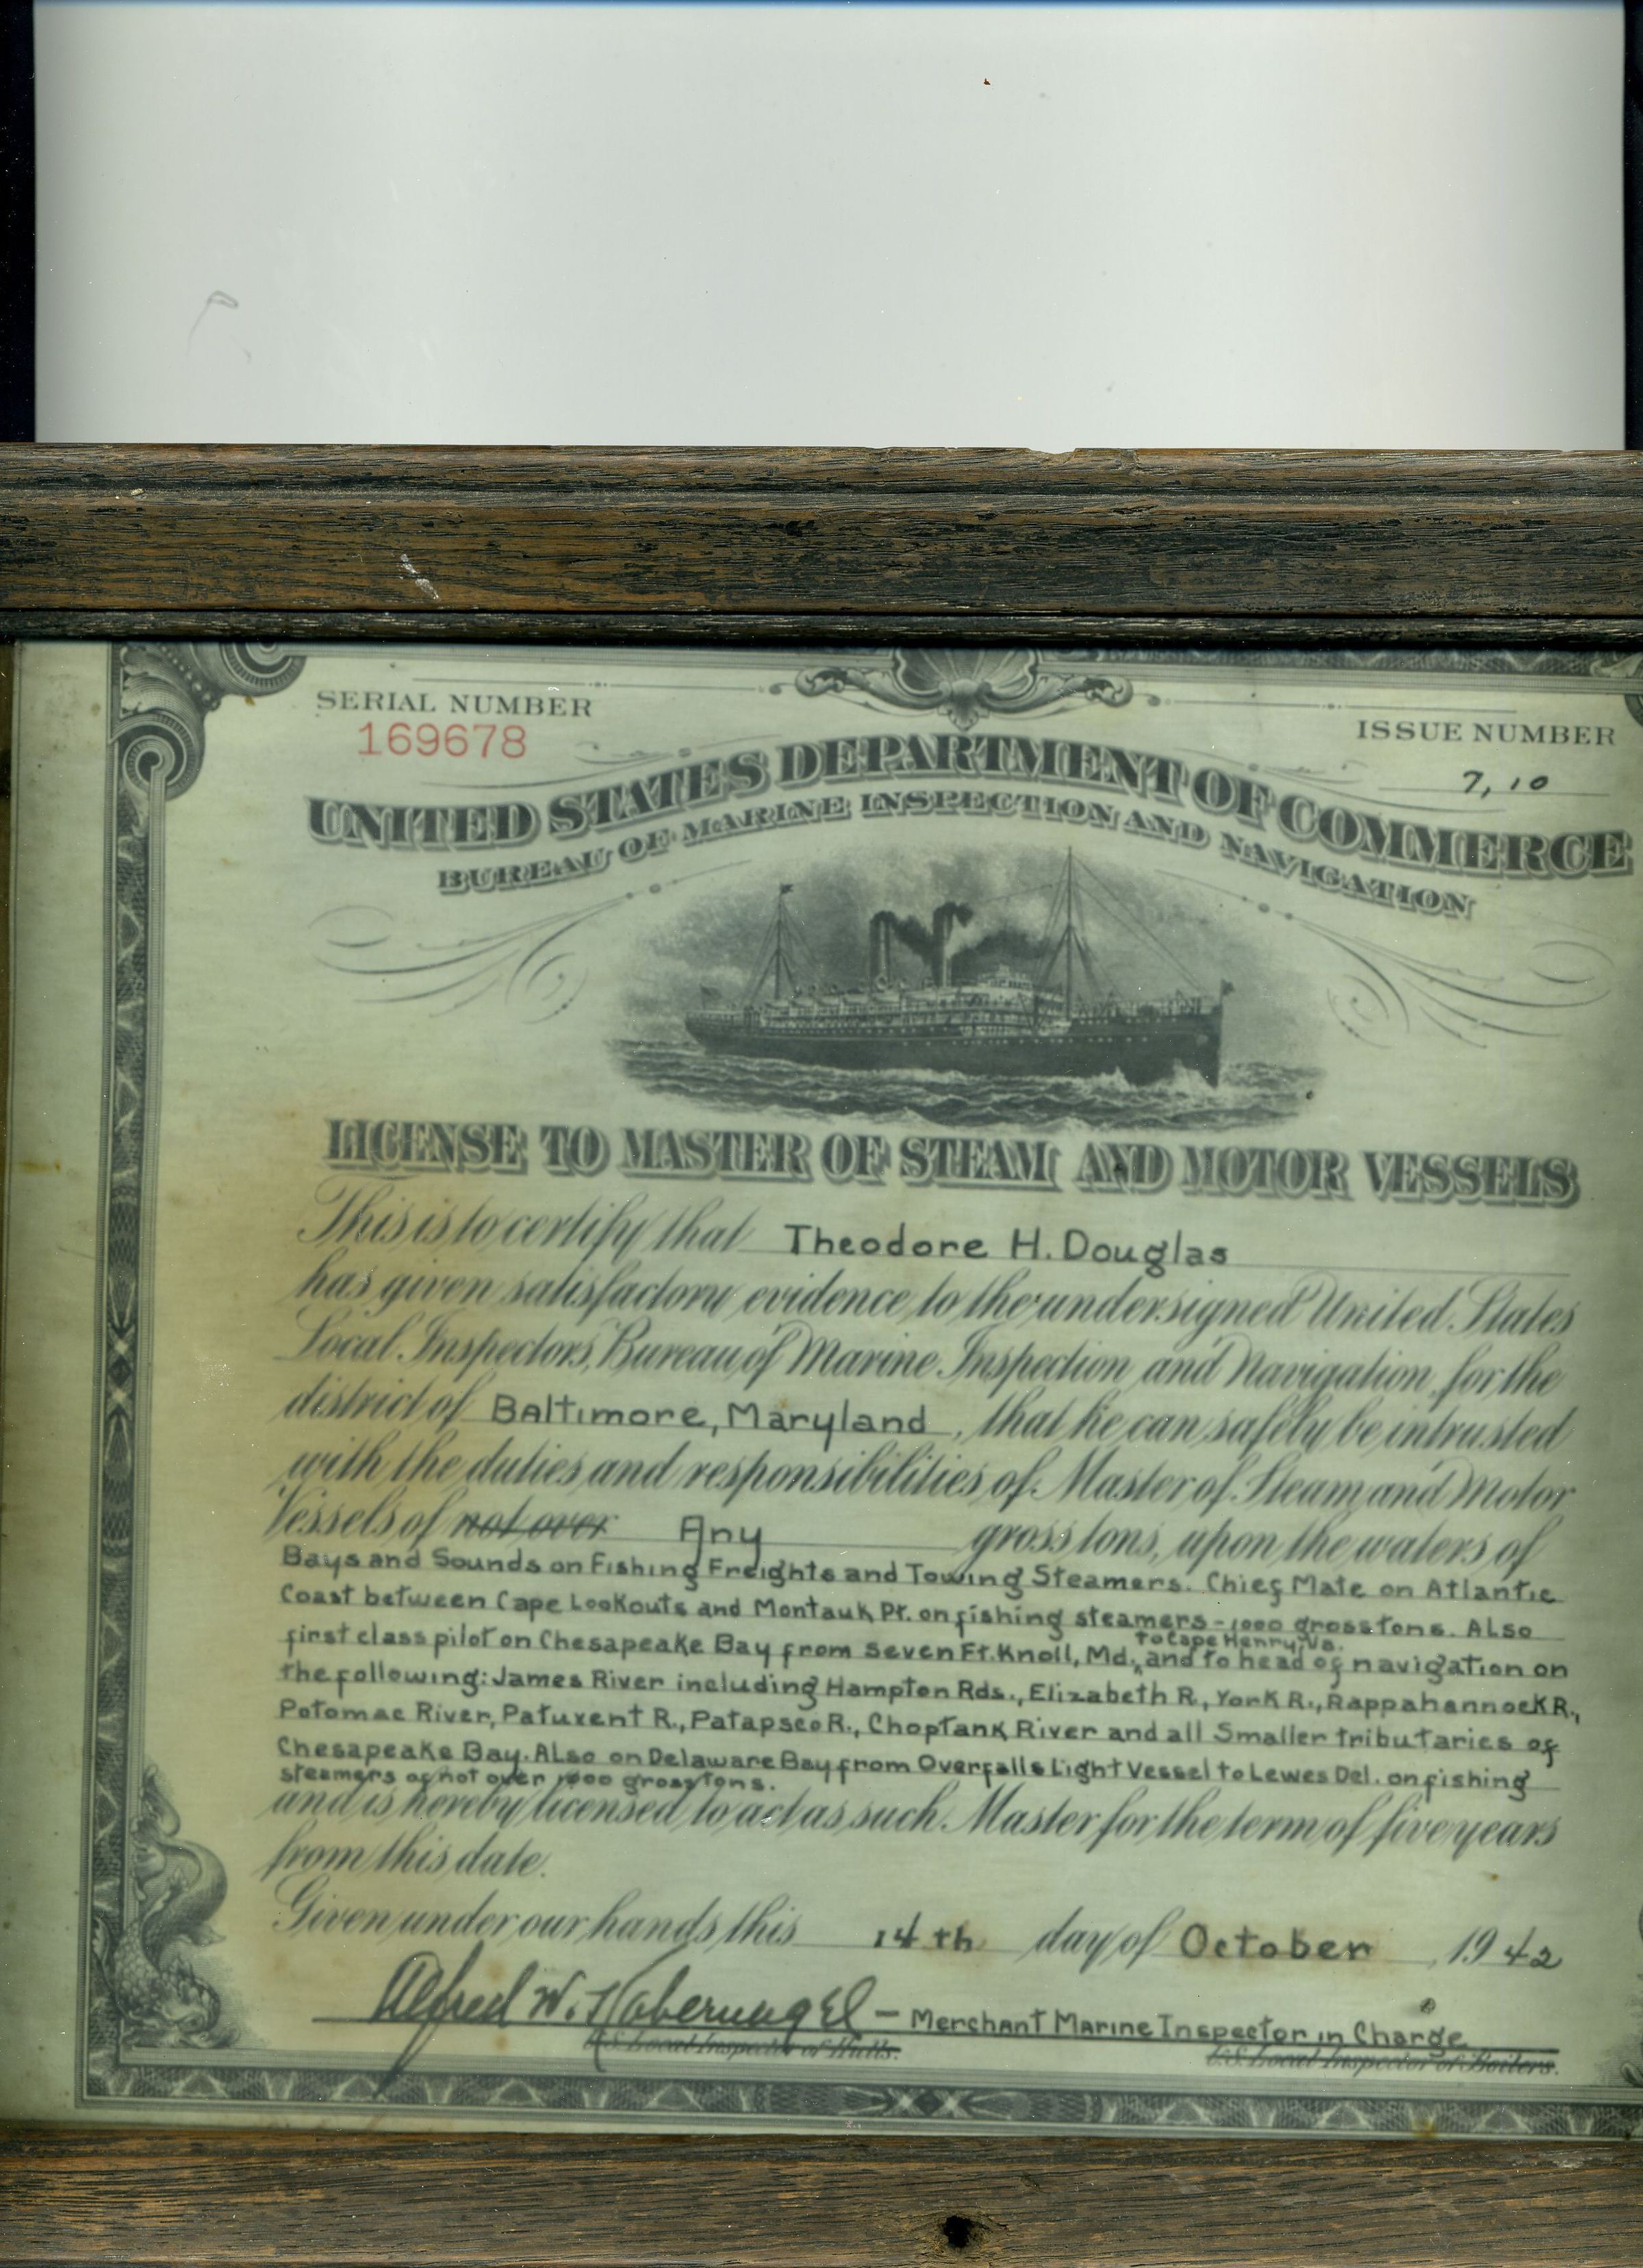 SERIAL NUMBER
169678
ISSUE NUMBER
7, 10
UNITED STATES DEPARTMENT OF COMMERCE
BUREAU OF MARINE INSPECTION AND NAVIGATION
LICENSE TO MASTER OF STEAM AND MOTOR VESSELS
This is to certify that Theodore H. Douglas
has given satisfactory evidence to the undersigned United States
Local Inspectors, Bureau of Marine Inspection and Navigation, for the
district of Baltimore, Maryland, that he can safely be intrusted
with the duties and responsibilities of Master of Steam and Motor
Vessels of not over Any gross tons, upon the waters of
Bays and Sounds on Fishing Freights and Towing Steamers. Chief Mate on Atlantic
Coast between Cape Lookouts and Montauk Pt. on fishing steamers - 1000 gross tons. Also
to Cape Henry, Va.
first class pilot on Chesapeake Bay from Seven Ft. Knoll, Md., and to head of navigation on
the following: James River including Hampton Rds., Elizabeth R., York R., Rappahannock R.,
Potomac River, Patuxent R., Patapsco R., Choptank River and all Smaller tributaries of
Chesapeake Bay. Also on Delaware Bay from Overfalls Light Vessel to Lewes Del. on fishing
steamers of not over 1000 gross tons.
and is hereby licensed to act as such Master for the term of five years
from this date.
Given under our hands this 14th day of October, 1942
Alfred W. Habernagel - Merchant Marine Inspector in Charge
U.S. Local Inspector of Hulls.
U.S. Local Inspector of Boilers.